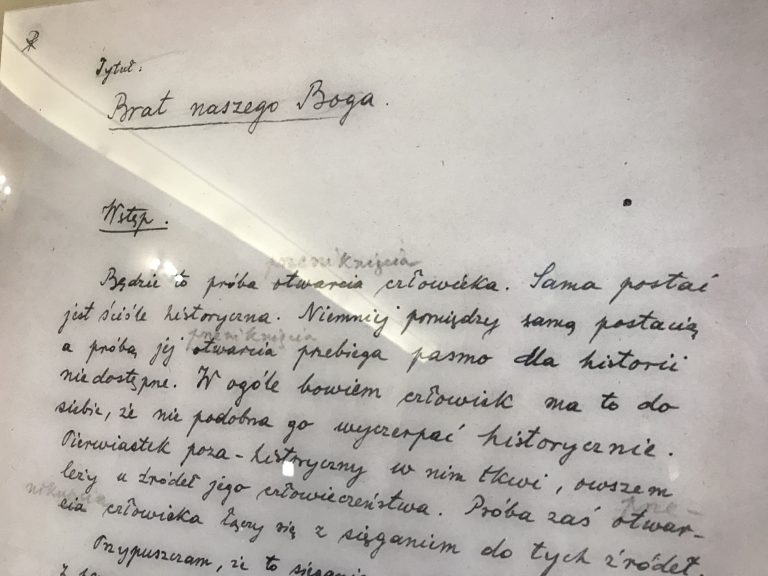 Tytuł:
Brat naszego Boga.
Wstęp.
przeniknięcia
Będzie to próba otwarcia człowieka. Sama postać
jest ściśle historyczna. Niemniej pomiędzy samą postacią
przeniknięcia
a próbą jej otwarcia przebiega pasmo dla historii
niedostępne. W ogóle bowiem człowiek ma to do
siebie, że nie podobna go wyczerpać historycznie.
Pierwiastek poza-historyczny w nim tkwi, owszem
leży u źródeł jego człowieczeństwa. Próba zaś otwar-
cia człowieka łączy się z sięganiem do tych źródeł.
Przypuszczam, że to sięganie